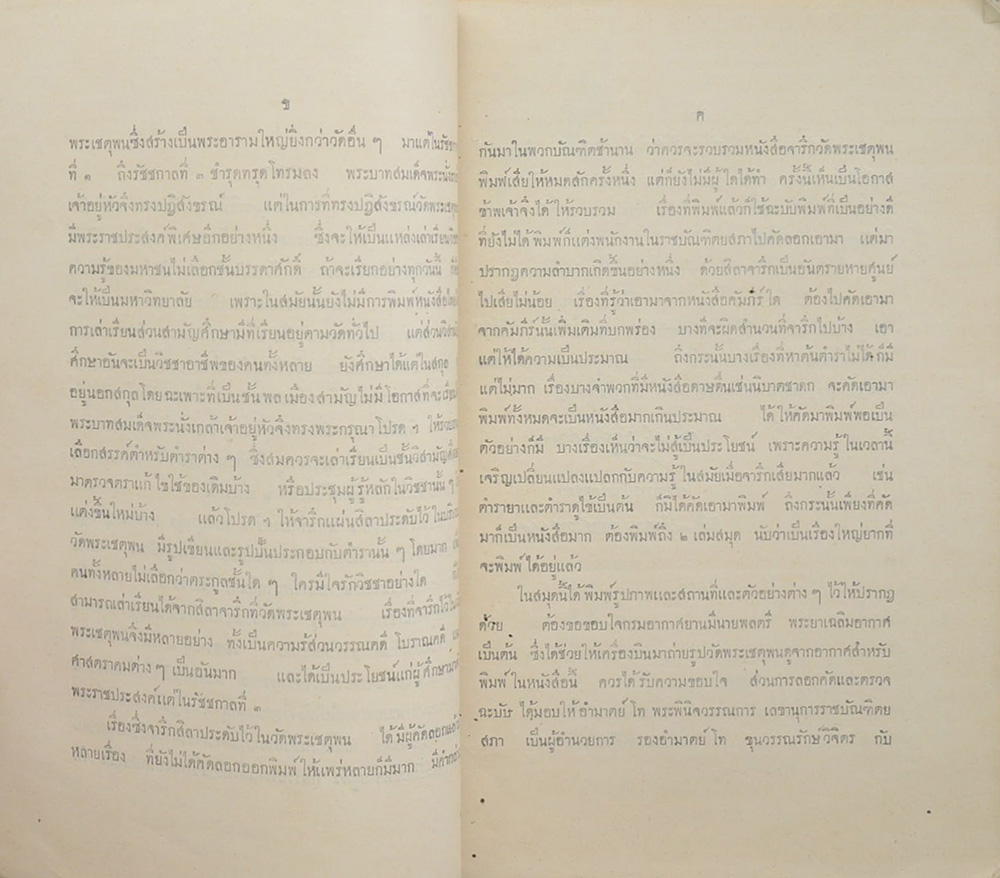 ข
พระเชตุพนซึ่งสร้างเป็นพระอารามใหญ่ยิ่งกว่าวัดอื่น ๆ มาแต่ในรัช
ที่ ๑ ถึงรัชชกาลที่ ๓ ชำรุดทรุดโทรมลง พระบาทสมเด็จพระนั่ง
เจ้าอยู่หัวจึ่งทรงปฏิสังขรณ์ แต่ในการที่ทรงปฏิสังขรณ์วัดพระเชตุพ
มีพระราชประสงค์พิเศษอีกอย่างหนึ่ง ซึ่งจะให้เป็นแหล่งเล่าเรียน
ความรู้ของมหาชนไม่เลือกชั้นบรรดาศักดิ์ ถ้าจะเรียกอย่างทุกวันนี้
จะให้เป็นมหาวิทยาลัย เพราะในสมัยนั้นยังไม่มีการพิมพ์หนังสือ
การเล่าเรียนส่วนสามัญศึกษามีที่เรียนอยู่ตามวัดทั่วไป แต่ส่วนวิสามัญ
ศึกษาอันจะเป็นวิชชาอาชีพของคนทั้งหลาย ยังศึกษาได้แต่ในสกุล
อยู่นอกสกุลโดยฉะเพาะที่เป็นชั้นพลเมืองสามัญไม่มีโอกาสที่จะเรียน
พระบาทสมเด็จพระนั่งเกล้าเจ้าอยู่หัวจึงทรงพระกรุณาโปรด ฯ ให้
เลือกสรรค์ตำหรับตำราต่าง ๆ ซึ่งสมควรจะเล่าเรียนเป็นชั้นวิสามัญศึก
มาตรวจตราแก้ไขใช้ของเดิมบ้าง หรือประชุมผู้รู้หลักในวิชชานั้น ๆ
แต่งขึ้นใหม่บ้าง แล้วโปรด ฯ ให้จารึกแผ่นสิลาประดับไว้ในบริ
วัดพระเชตุพน มีรูปเขียนและรูปปั้นประกอบกับตำรานั้น ๆ โดยมาก
คนทั้งหลายไม่เลือกว่าตระกูลชั้นใด ๆ ใครมีใจรักวิชชาอย่างใด
สามารถเล่าเรียนได้จากสิลาจารึกที่วัดพระเชตุพน เรื่องที่จารึกไว้ใน
พระเชตุพนจึงมีหลายอย่าง ทั้งเป็นความรู้ส่วนวรรณคดี โบราณคดี
ศาสตราคมต่าง ๆ เป็นอันมาก และได้เป็นประโยชน์แก่ผู้ศึกษามา
พระราชประสงค์แต่ในรัชชกาลที่ ๓
เรื่องซึ่งจารึกสิลาประดับไว้ในวัดพระเชตุพน ได้มีผู้คัดลอก
หลายเรื่อง ที่ยังไม่ได้คัดลอกออกพิมพ์ให้แพร่หลายก็มีมาก มีคำ
ค
กันมาในพวกบัณฑิตช้านาน ว่าควรจะรวบรวมหนังสือจารึกวัดพระเชตุพน
พิมพ์เสียให้หมดสักครั้งหนึ่ง แต่ก็ยังไม่มีผู้ใดได้ทำ ครั้งนี้เห็นเป็นโอกาส
ข้าพเจ้าจึงได้ให้รวบรวม เรื่องที่พิมพ์แล้วก็ใช้ฉะบับพิมพ์ที่เป็นอย่างดี
ที่ยังไม่ได้พิมพ์ก็แต่งพนักงานในราชบัณฑิตยสภาไปคัดลอกเอามา แต่มา
ปรากฏความลำบากเกิดขึ้นอย่างหนึ่ง ด้วยสิลาจารึกเป็นอันตรายหายศูนย์
ไปเสียไม่น้อย เรื่องที่รู้ว่าเอามาจากหนังสือคัมภีร์ใด ต้องไปคัดเอามา
จากคัมภีร์นั้นเพิ่มเติมที่บกพร่อง บางทีจะผิดสำนวนที่จารึกไปบ้าง เอา
แต่ให้ได้ความเป็นประมาณ ถึงกระนั้นบางเรื่องที่หาต้นตำราไม่ได้ก็มี
แต่ไม่มาก เรื่องบางจำพวกที่มีหนังสือดาษดื่นเช่นนิบาตชาดก จะคัดเอามา
พิมพ์ทั้งหมดจะเป็นหนังสือมากเกินประมาณ ได้ให้คัดมาพิมพ์พอเป็น
ตัวอย่างก็มี บางเรื่องเห็นว่าจะไม่สู้เป็นประโยชน์ เพราะความรู้ในเวลานี้
เจริญเปลี่ยนแปลงแปลกกับความรู้ในสมัยเมื่อจารึกเสียมากแล้ว เช่น
ตำรายาและตำราดูไช้เป็นต้น ก็มิได้คัดเอามาพิมพ์ ถึงกระนั้นเพียงที่คัด
มาก็เป็นหนังสือมาก ต้องพิมพ์ถึง ๒ เล่มสมุด นับว่าเป็นเรื่องใหญ่ยากที่
จะพิมพ์ได้อยู่แล้ว
ในสมุดนี้ได้พิมพ์รูปภาพและสถานที่และตัวอย่างต่าง ๆ ไว้ให้ปรากฏ
ด้วย ต้องขอขอบใจกรมอากาศยานมีนายพลตรี พระยาเฉลิมอากาศ
เป็นต้น ซึ่งได้ช่วยให้เครื่องบินมาถ่ายรูปวัดพระเชตุพนดูจากอากาศสำหรับ
พิมพ์ในหนังสือนี้ ควรได้รับความขอบใจ ส่วนการลอกคัดและตรวจ
ฉะบับ ได้มอบให้อำมาตย์โท พระพินิจวรรณการ เลขานุการราชบัณฑิตย
สภา เป็นผู้อำนวยการ รองอำมาตย์โท ขุนวรรณรักษ์วิจิตร กับ